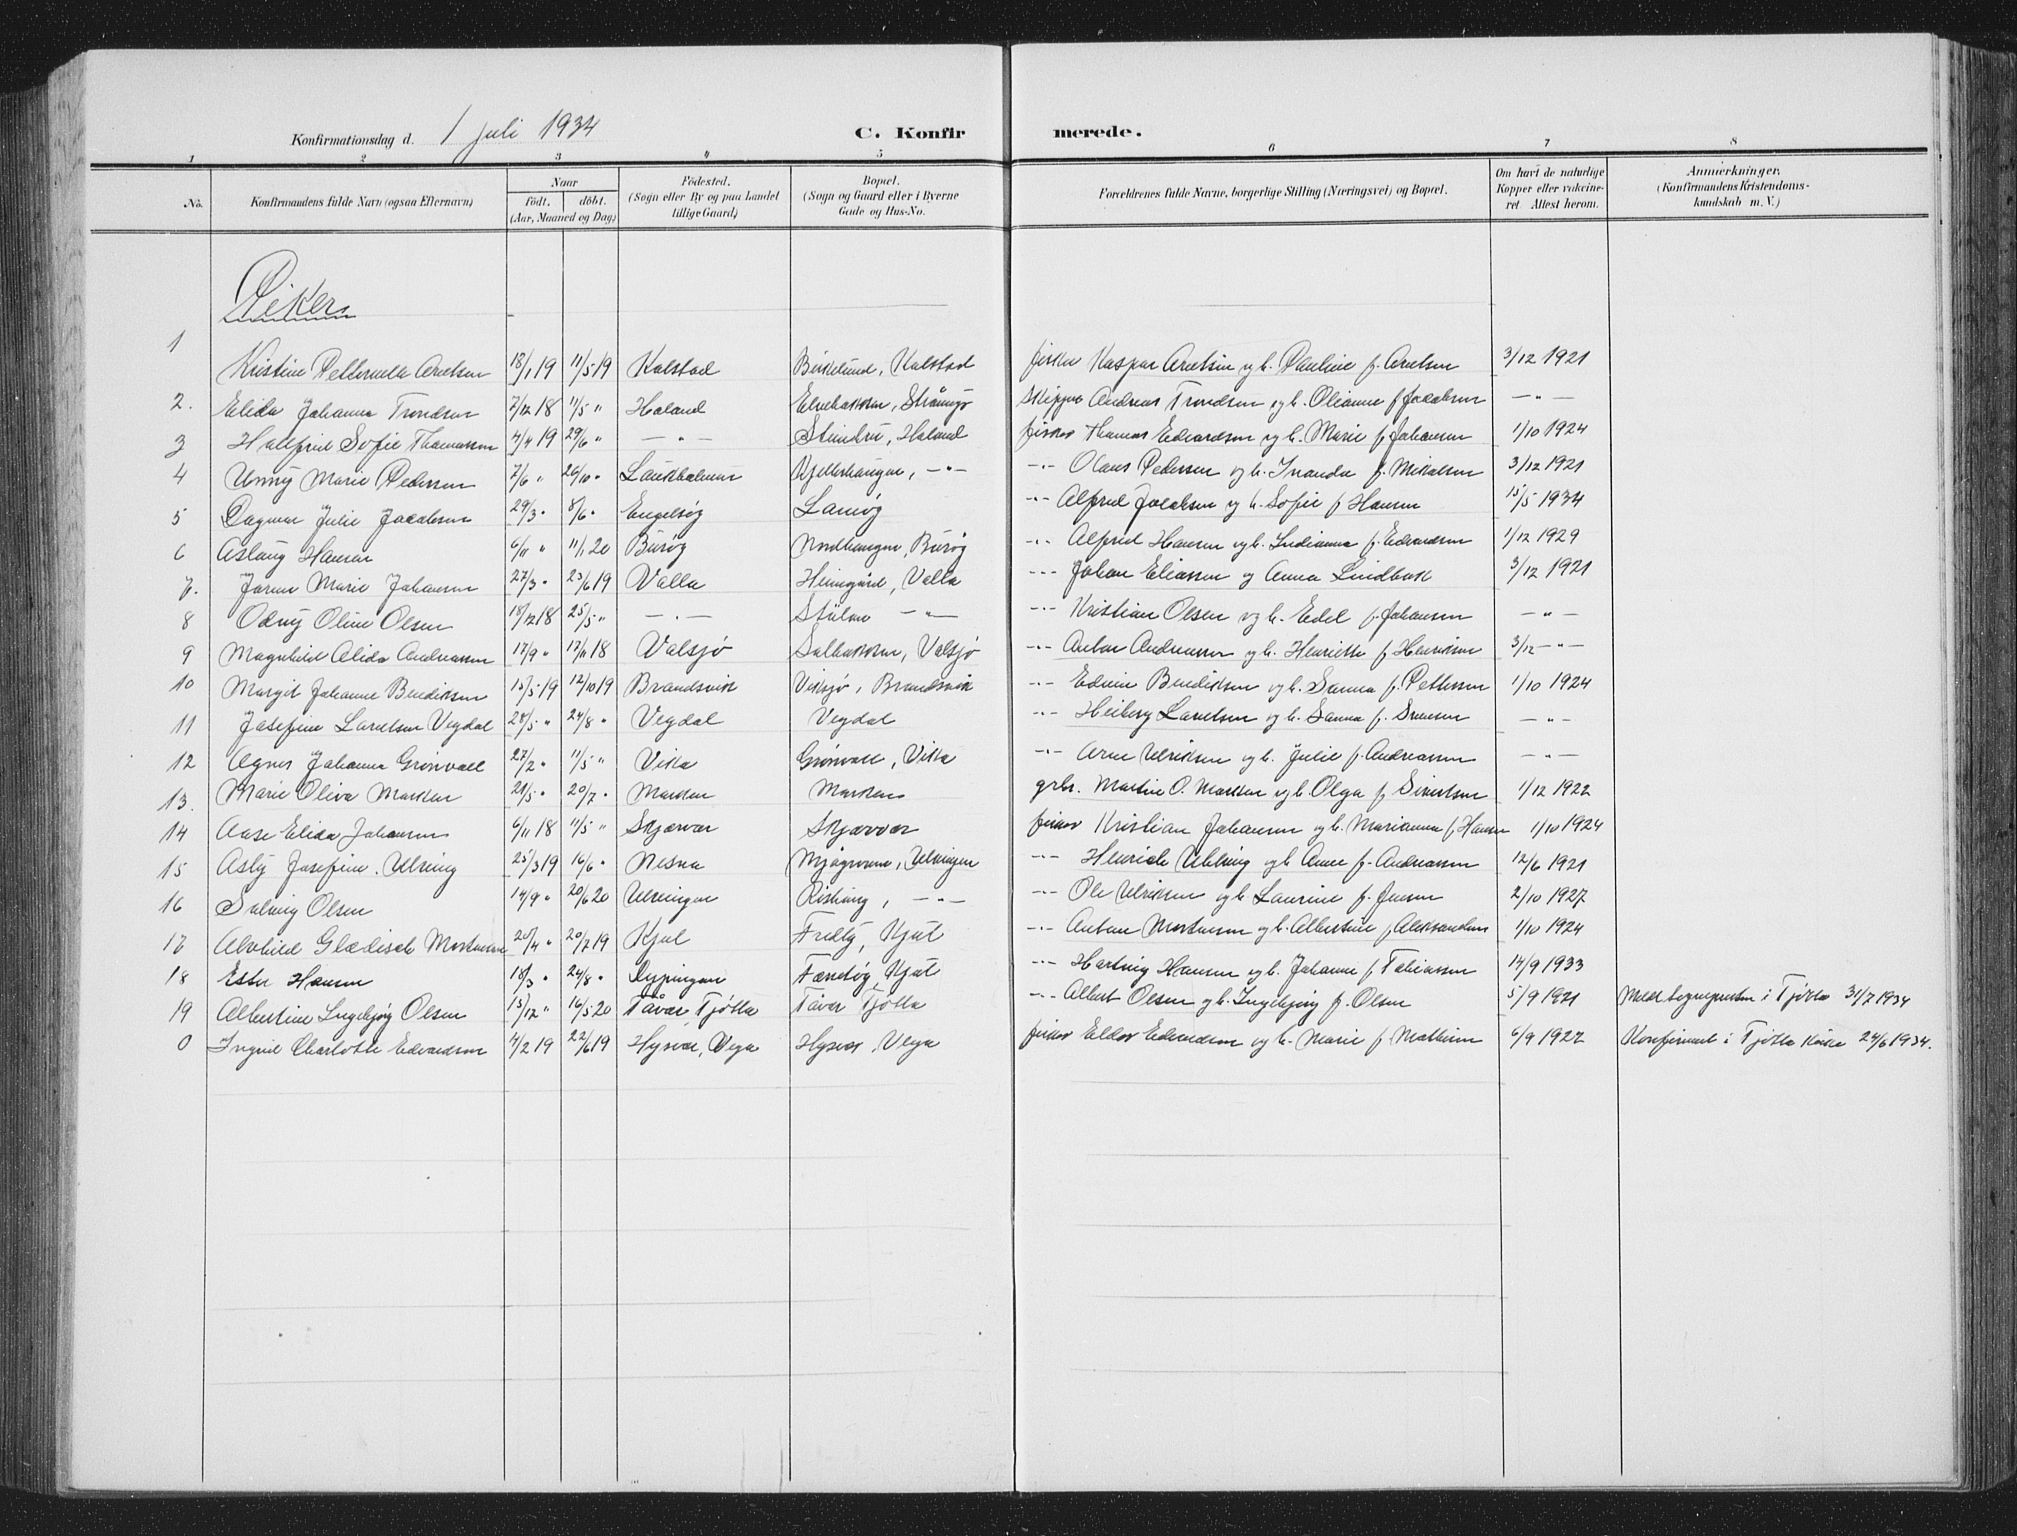 Konfirmationsdag d. 1 juli 1934 C. Konfir merede.
1 2 3 4 5 6 7 8
No. Konfirmandens fulde Navn (ogsaa Efternavn) Naar födt. döbt. (Aar, Maaned og Dag) Födested. (Sogn eller By og paa Landet tillige Gaard) Bopæl. (Sogn og Gaard eller i Byerne Gade og Hus-No. Forældrenes fulde Navne, borgerlige Stilling (Næringsvei) og Bopæl. Om havt de naturlige Kopper eller vakcineret. Attest herom. Anmærkninger. (Konfirmandens Kristendomskundskab m. V.)
Piker
1 Kristine Petternela Arntsen 18/1 19 11/5 19 Kalstad Birkelund, Kalstad fisker Kaspar Arntsen og h. Pauline f. Arntsen 3/12 1921
2. Elida Johanna Trondsen 7/12 18 11/5 " Haland Skipper Andreas Trondsen og h. Olianne f Jacobsen — " —
3 Hallfrid Sofie Thomassen 4/4 19 29/6 " — " — Steindru, Haland fisker Thomas Edvardsen og h. Marie f. Johansen 1/10 1924
4 Unny Marie Pedersen 7/6 " 26/10 " Laukholmen Kjellerhaugen, — " — -"- Olaus Pedersen og h. Ivanda f. Mikalsen 3/12 1921
5 Dagmar Julie Jacobsen 29/3 " 8/6 " Engelsøy Lamøy -"- Alfred Jacobsen og h. Sofie f Hansen 15/5 1934
6 Aslaug Hansen 6/11 " 11/1 20 Burøy Nordhaugen, Burøy -"- Alfred Hansen og h. Indianna f. Edvardsen 1/12 1929
7. Jorunn Marie Johansen 27/3 " 23/6 19 Valla Heimgård, Valla -"- Johan Eliassen og Anna Lindbak 3/12 1921
8 Odny Oline Olsen 18/12 18 25/5 " — " — Stølen — " — -"- Kristian Olsen og h. Edel f. Johansen — " —
9 Magnhild Alida Andreassen 17/9 " 17/11 18 Valsjø Salbakken, Valsjø -"- Anton Andreassen og h. Henriette f Henriksen 3/12 — " —
10 Margit Johanne Bendiksen 15/5 19 12/10 19 Brandsvik Viksjø, Brandsvik -"- Edvin Bendiksen og h. Sanna f. Pettersen 1/10 1924
11 Josefine Lorentsen Vegdal 28/5 " 24/8 " Vegdal Vegdal -"- Heiberg Lorentsen og h. Sanna f. Svensen — " —
12 Agnes Johanna Grønvall 27/2 " 11/5 " Vika Grønvall, Vika -"- Arne Ulriksen og h. Julie f. Andreassen — " —
13. Marie Oliva Marken 21/5 " 20/7 " Marken Marken grbr. Martin O. Marken og h. Olga f Sivertsen 1/12 1922
14 Aase Elida Johansen 6/11 18 11/5 " Skjærvær Skjærvær fisker Kristian Johansen og h. Marianna f Hansen 1/10 1924
15 Asly Josefine Ulving 25/3 19 16/6 " Nesna -"- Henrich Ulving og h. Anne f. Andreassen 12/6 1921
16 Solveig Olsen 14/9 " 20/6 20 Ulvingen Ristiung, — " — -"- Ole Ulriksen og h. Laurine f. Jensen 2/10 1927
17 Alvhild Glædisch Mortensen 20/4 " 20/7 19 Kjul Fredly, Kjul -"- Anton Mortensen og h. Albertine f Aleksanders 1/10 1924
18 Ester Hansen 18/3 " 24/8 " Rypingen Færøy, Kjul -"- Hartvig Hansen og h. Johanne f Tobiassen 14/9 1933
19 Albertine Ingebjørg Olsen 15/12 " 16/5 20 Tåvær, Tjøtta Tåvær Tjøtta -"- Albert Olsen og h. Ingebjørg f. Olsen 5/9 1921 Meldt sogneprestn i Tjøtta 31/7 1934
0 Ingrid Charlotte Edvardsen 4/2 19 22/6 19 Hysvær, Vega Hysvær, Vega fisker Eldor Edvardsen og h. Marie f. Mathisen 6/9 1927 Konfirmert i Tjøtta kirke 24/6 1934.